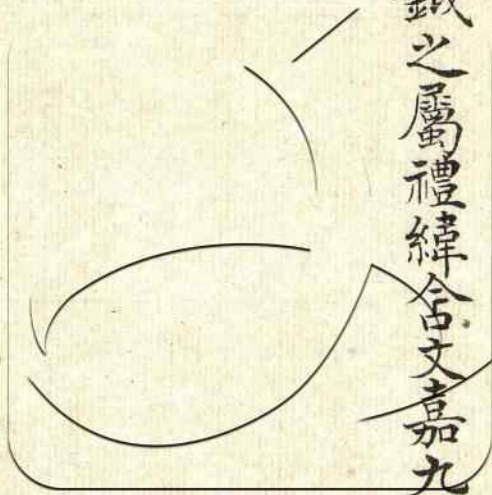 鉞之屬禮緯含文嘉九